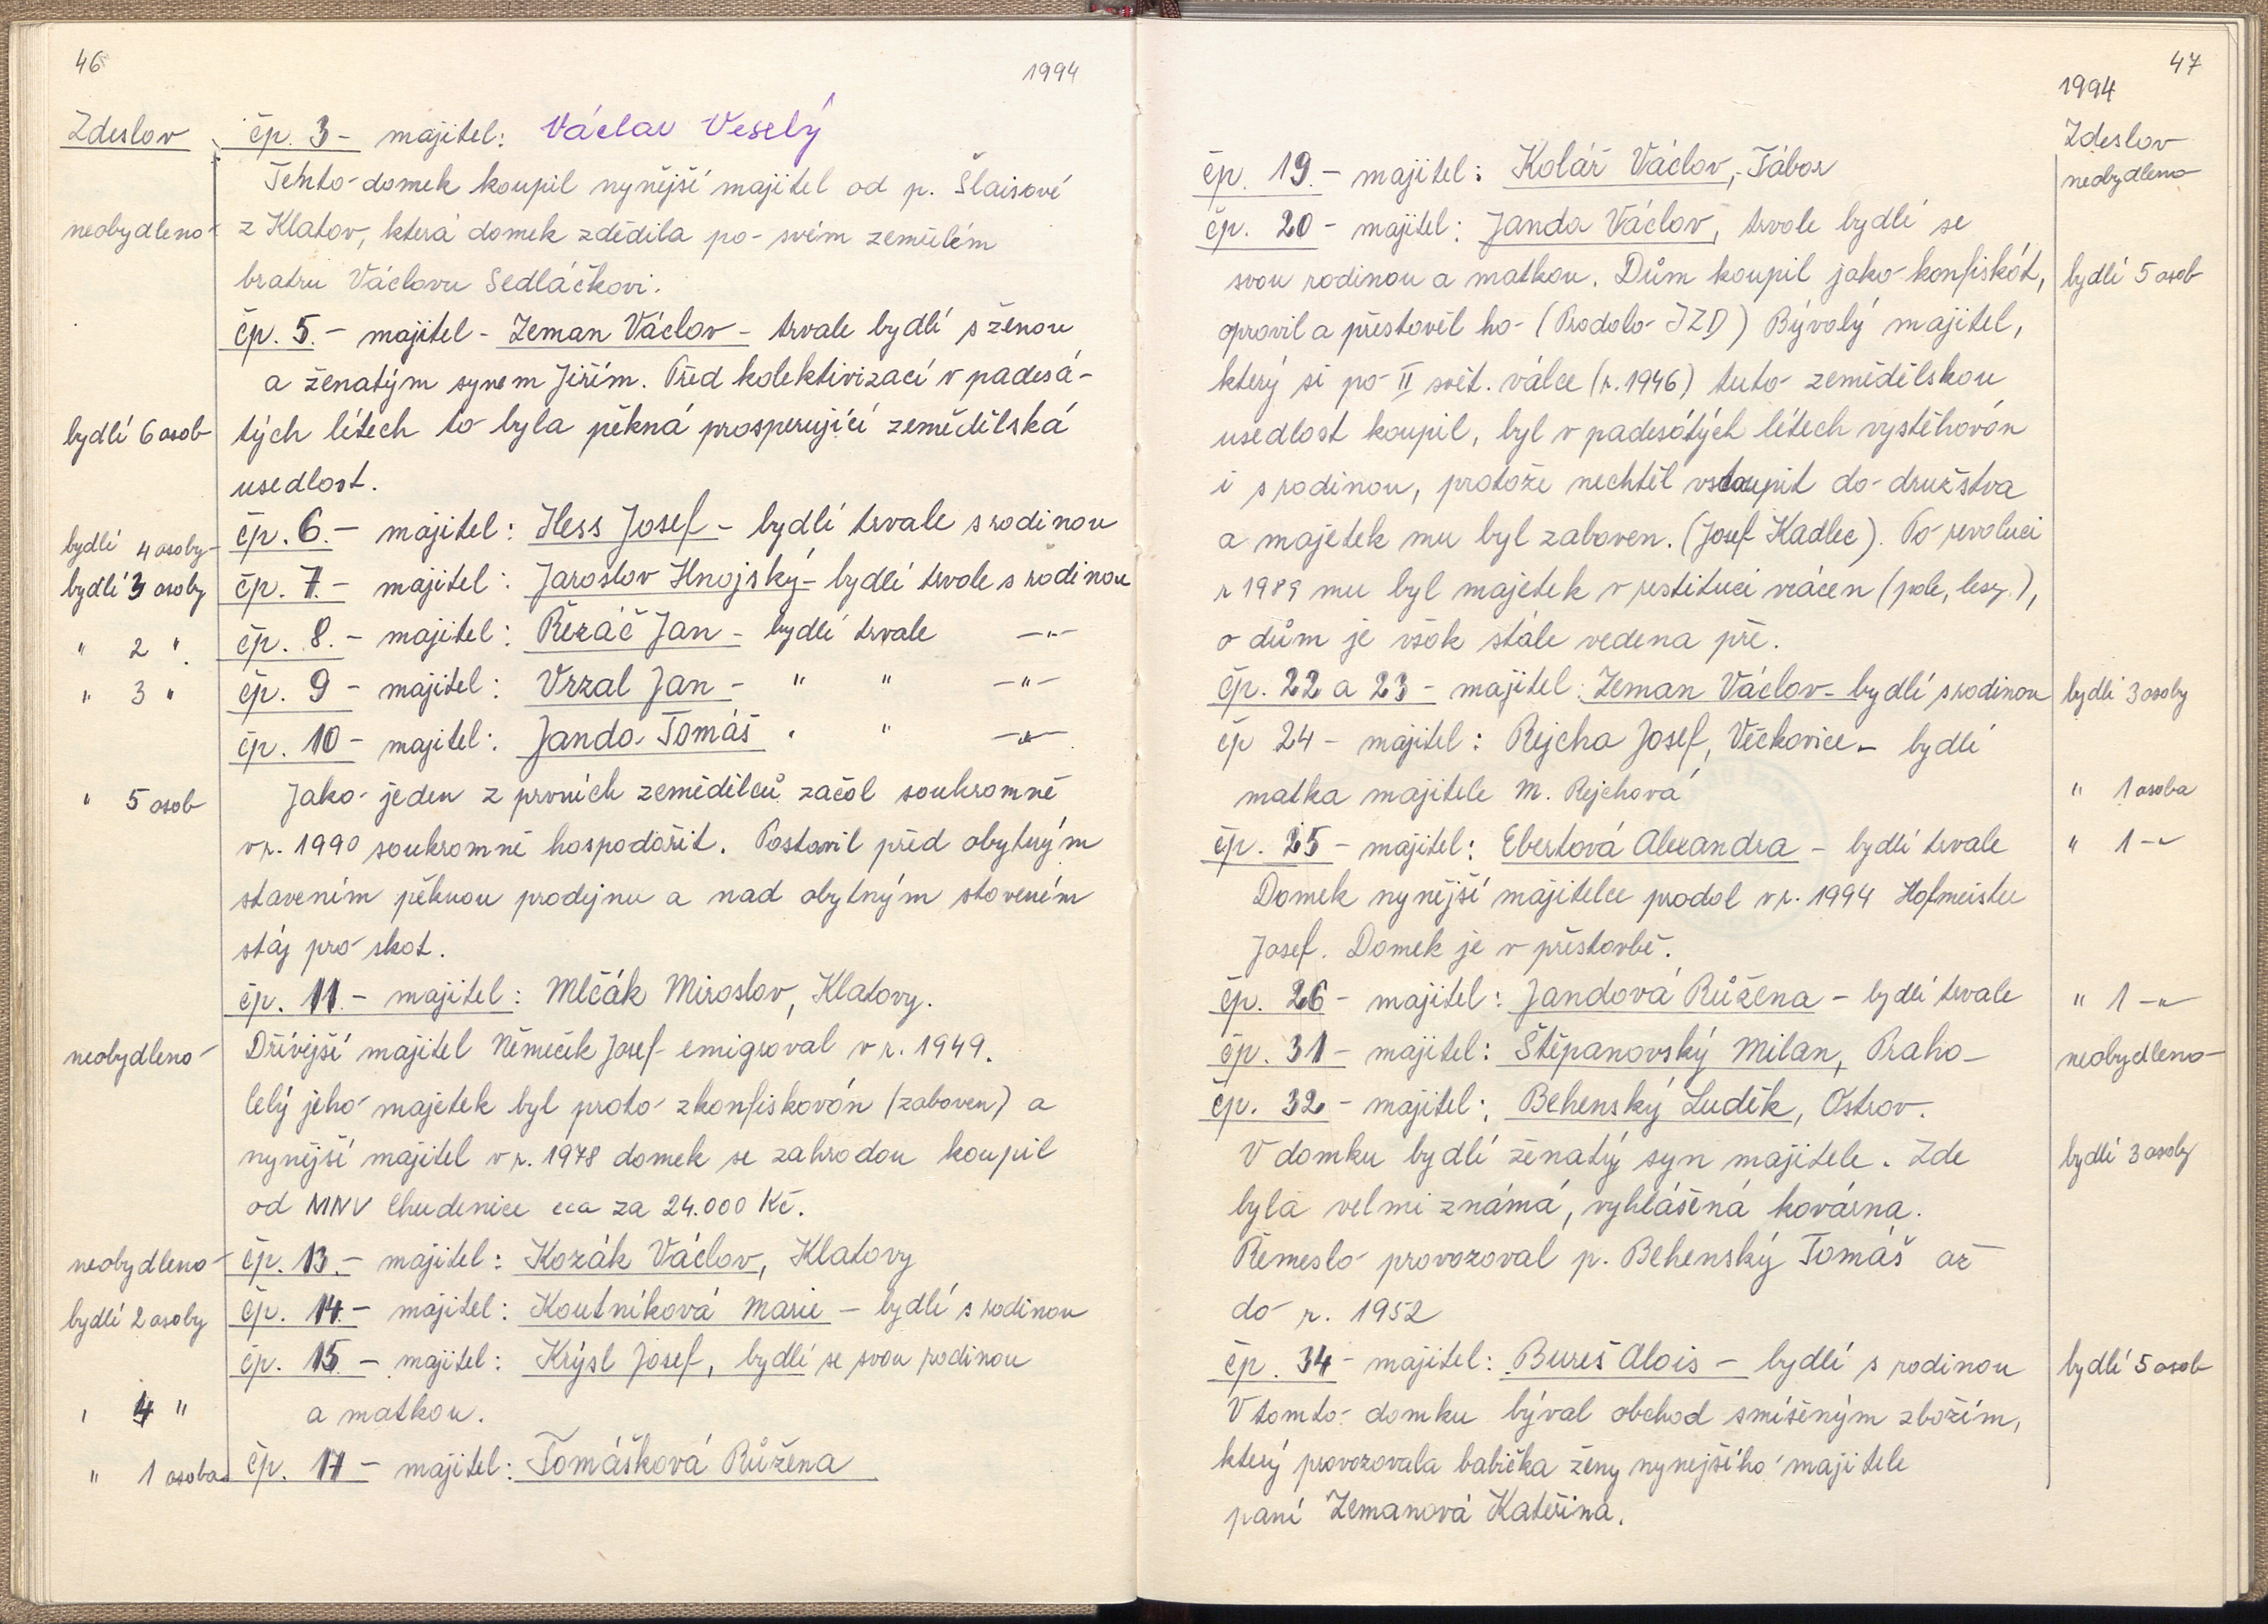 46
1994
Zdeslov čp. 3 - majitel: Václav Veselý
Tehto domek koupil nynější majitel od p. Šlaisové
neobydleno z Klatov, která domek zdědila po svém zemřelém
bratru Václavu Sedláčkovi.
čp. 5. - majitel - Zeman Václav - trvale bydlí s ženou
a ženatým synem Jiřím. Před kolektivizací v padesá-
bydlí 6 osob tých létech to byla pěkná prosperující zemědělská
usedlost.
bydlí 4 osoby čp. 6. - majitel: Hess Josef - bydlí trvale s rodinou
bydlí 3 osoby čp. 7. - majitel: Jaroslav Hnojský - bydlí trvale s rodinou
" 2 " čp. 8. - majitel: Řezáč Jan - bydlí trvale -"-
" 3 " čp. 9 - majitel: Vrzal Jan - " " -"-
čp. 10 - majitel: Janda Tomáš " " -"-
" 5 osob Jako jeden z prvních zemědělců začal soukromně
v r. 1990 soukromně hospodařit. Postavil před obytným
stavením pěknou prodejnu a nad obytným stavením
stáj pro skot.
čp. 11. - majitel: Mlčák Miroslav, Klatovy.
neobydleno Dřívější majitel Němeček Josef emigroval v r. 1949.
Celý jeho majetek byl proto zkonfiskován (zabaven) a
nynější majitel v r. 1978 domek se zahradou koupil
od MNV Chudenice cca za 24.000 Kč.
neobydleno čp. 13. - majitel: Kozák Václav, Klatovy
bydlí 2 osoby čp. 14. - majitel: Koutníková Marie - bydlí s rodinou
čp. 15 - majitel: Krýsl Josef, bydlí se svou rodinou
" 4 " a matkou.
" 1 osoba čp. 17 - majitel: Tomášková Růžena
47
1994
Zdeslov
čp. 19. - majitel: Kolář Václav, Tábor neobydleno
čp. 20 - majitel: Janda Václav, trvale bydlí se
svou rodinou a matkou. Dům koupil jako konfiskát, bydlí 5 osob
opravil a přestavěl ho (Prodalo JZD) Bývalý majitel,
který si po II svět. válce (r. 1946) tuto zemědělskou
usedlost koupil, byl v padesátých létech vystěhován
i s rodinou, protože nechtěl vstoupit do družstva
a majetek mu byl zabaven. (Josef Kadlec). Po revoluci
r 1989 mu byl majetek v restituci vrácen (pole, lesy.),
o dům je však stále vedena pře.
čp. 22 a 23 - majitel: Zeman Václav - bydlí s rodinou bydlí 3 osoby
čp 24 - majitel: Rejcha Josef, Věckovice - bydlí
matka majitele M. Rejchová " 1 osoba
čp. 25 - majitel: Ebertová Alexandra - bydlí trvale " 1 -"-
Domek nynější majitelce prodal v r. 1994 Hofmeister
Josef. Domek je v přestavbě.
čp. 26 - majitel: Jandová Růžena - bydlí trvale " 1 -"-
čp. 31 - majitel: Štěpanovský Milan, Praha neobydleno
čp. 32 - majitel: Behenský Luděk, Ostrov.
V domku bydlí ženatý syn majitele. Zde bydlí 3 osoby
byla velmi známá, vyhlášená kovárna.
Řemeslo provozoval p. Behenský Tomáš až
do r. 1952
čp. 34 - majitel: Bureš Alois - bydlí s rodinou bydlí 5 osob
V tomto domku býval obchod smíšeným zbožím,
který provozovala babička ženy nynejšího majitele
paní Zemanová Kateřina.